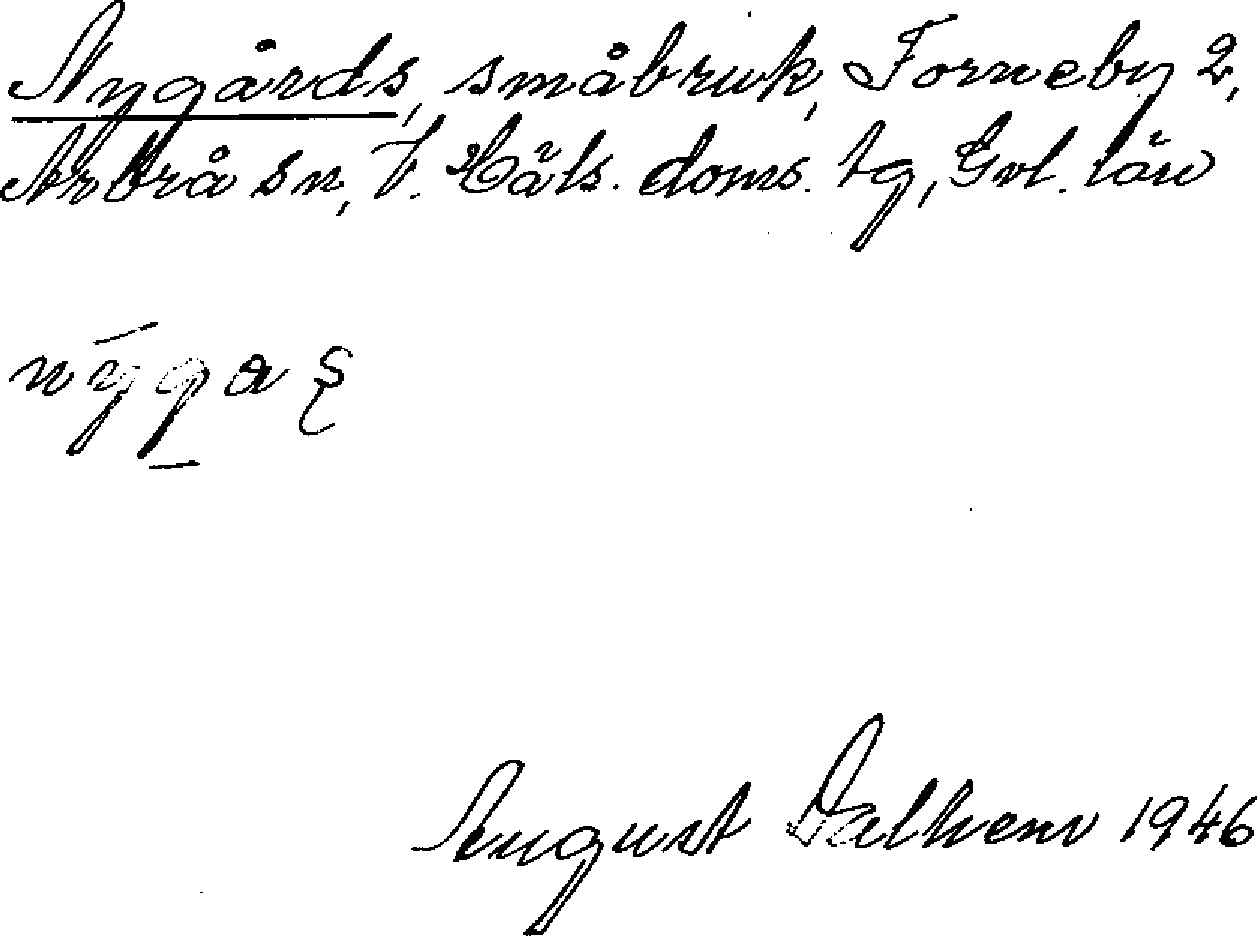 Nygårds, småbruk, Forneby 2,
Arbrå sn, V. Häls. doms. tg, Gvl. län
nýgaş
August Dalhem 1946